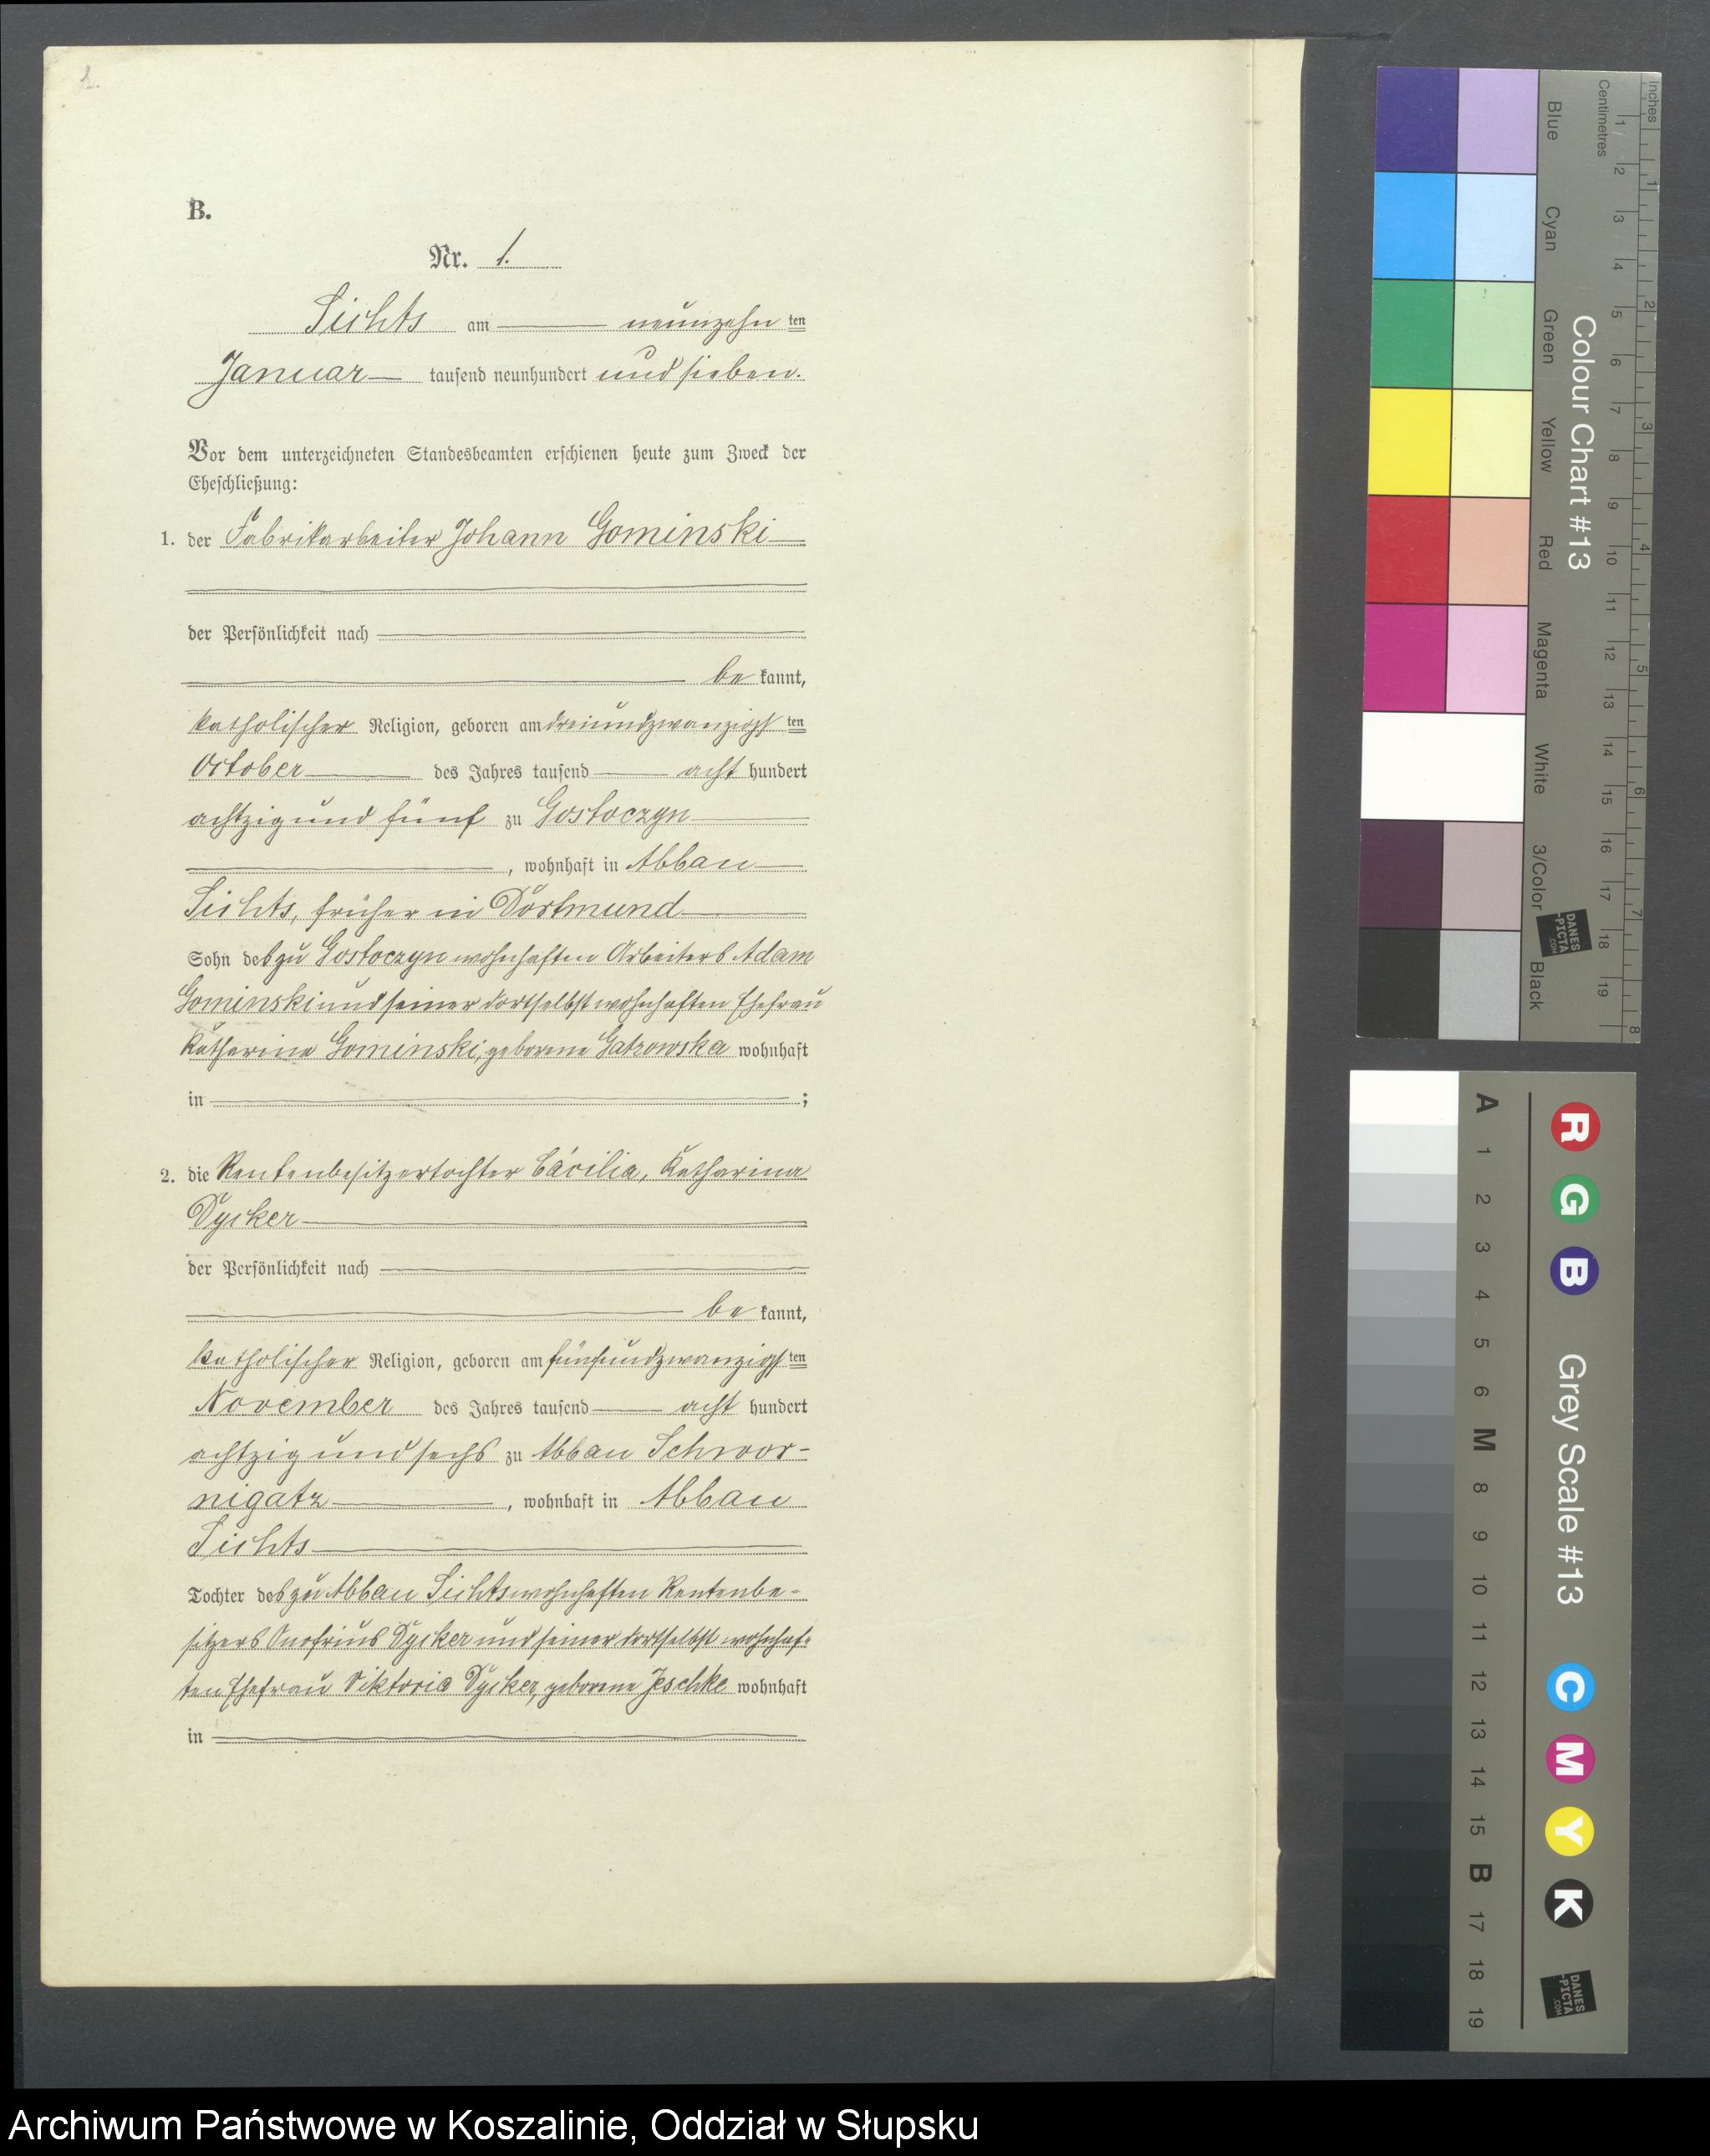 1.
B.
Nr. 1.
Lichts am neunzehn ten
Januar tausend neunhundert und sieben.
Vor dem unterzeichneten Standesbeamten erschienen heute zum Zweck der
Eheschließung:
1. der Fabrikarbeiter Johann Gominski
der Persönlichkeit nach
be kannt,
katholischer Religion, geboren am dreiundzwanzigs ten
October des Jahres tausend acht hundert
achtzig und fünf zu Gostoczyn
, wohnhaft in Abbau
Lichts, früher in Dortmund
Sohn des zu Gostoczyn wohnhaften Arbeiters Adam
Gominski und seiner dortselbst wohnhaften Ehefrau
Katharina Gominski, geborene Gatzowska wohnhaft
in ;
2. die Rentenbesitzertochter Cäcilia, Katharina
Dycker
der Persönlichkeit nach
be kannt,
katholischer Religion, geboren am fünfundzwanzigs ten
November des Jahres tausend acht hundert
achtzig und sechs zu Abbau Schwor-
nigatz , wohnhaft in Abbau
Lichts
Tochter des zu Abbau Lichts wohnhaften Rentenbe-
sitzers Onofrius Dycker und seiner dortselbst wohnhaf-
ten Ehefrau Viktoria Dycker, geborene Jeschke wohnhaft
in
Inches
Centimetres
1 2 3 4 5 6 7 8 9 10 11 12 13 14 15 16 17 18 19
1 2 3 4 5 6 7 8
Colour Chart #13
Blue Cyan Green Yellow Red Magenta White 3/Color Black
DANES
-PICTA
.COM
R G B
Grey Scale #13
C M Y K
A 1 2 3 4 5 6 M 8 9 10 11 12 13 14 15 B 17 18 19
DANES
-PICTA
.COM
Archiwum Państwowe w Koszalinie, Oddział w Słupsku